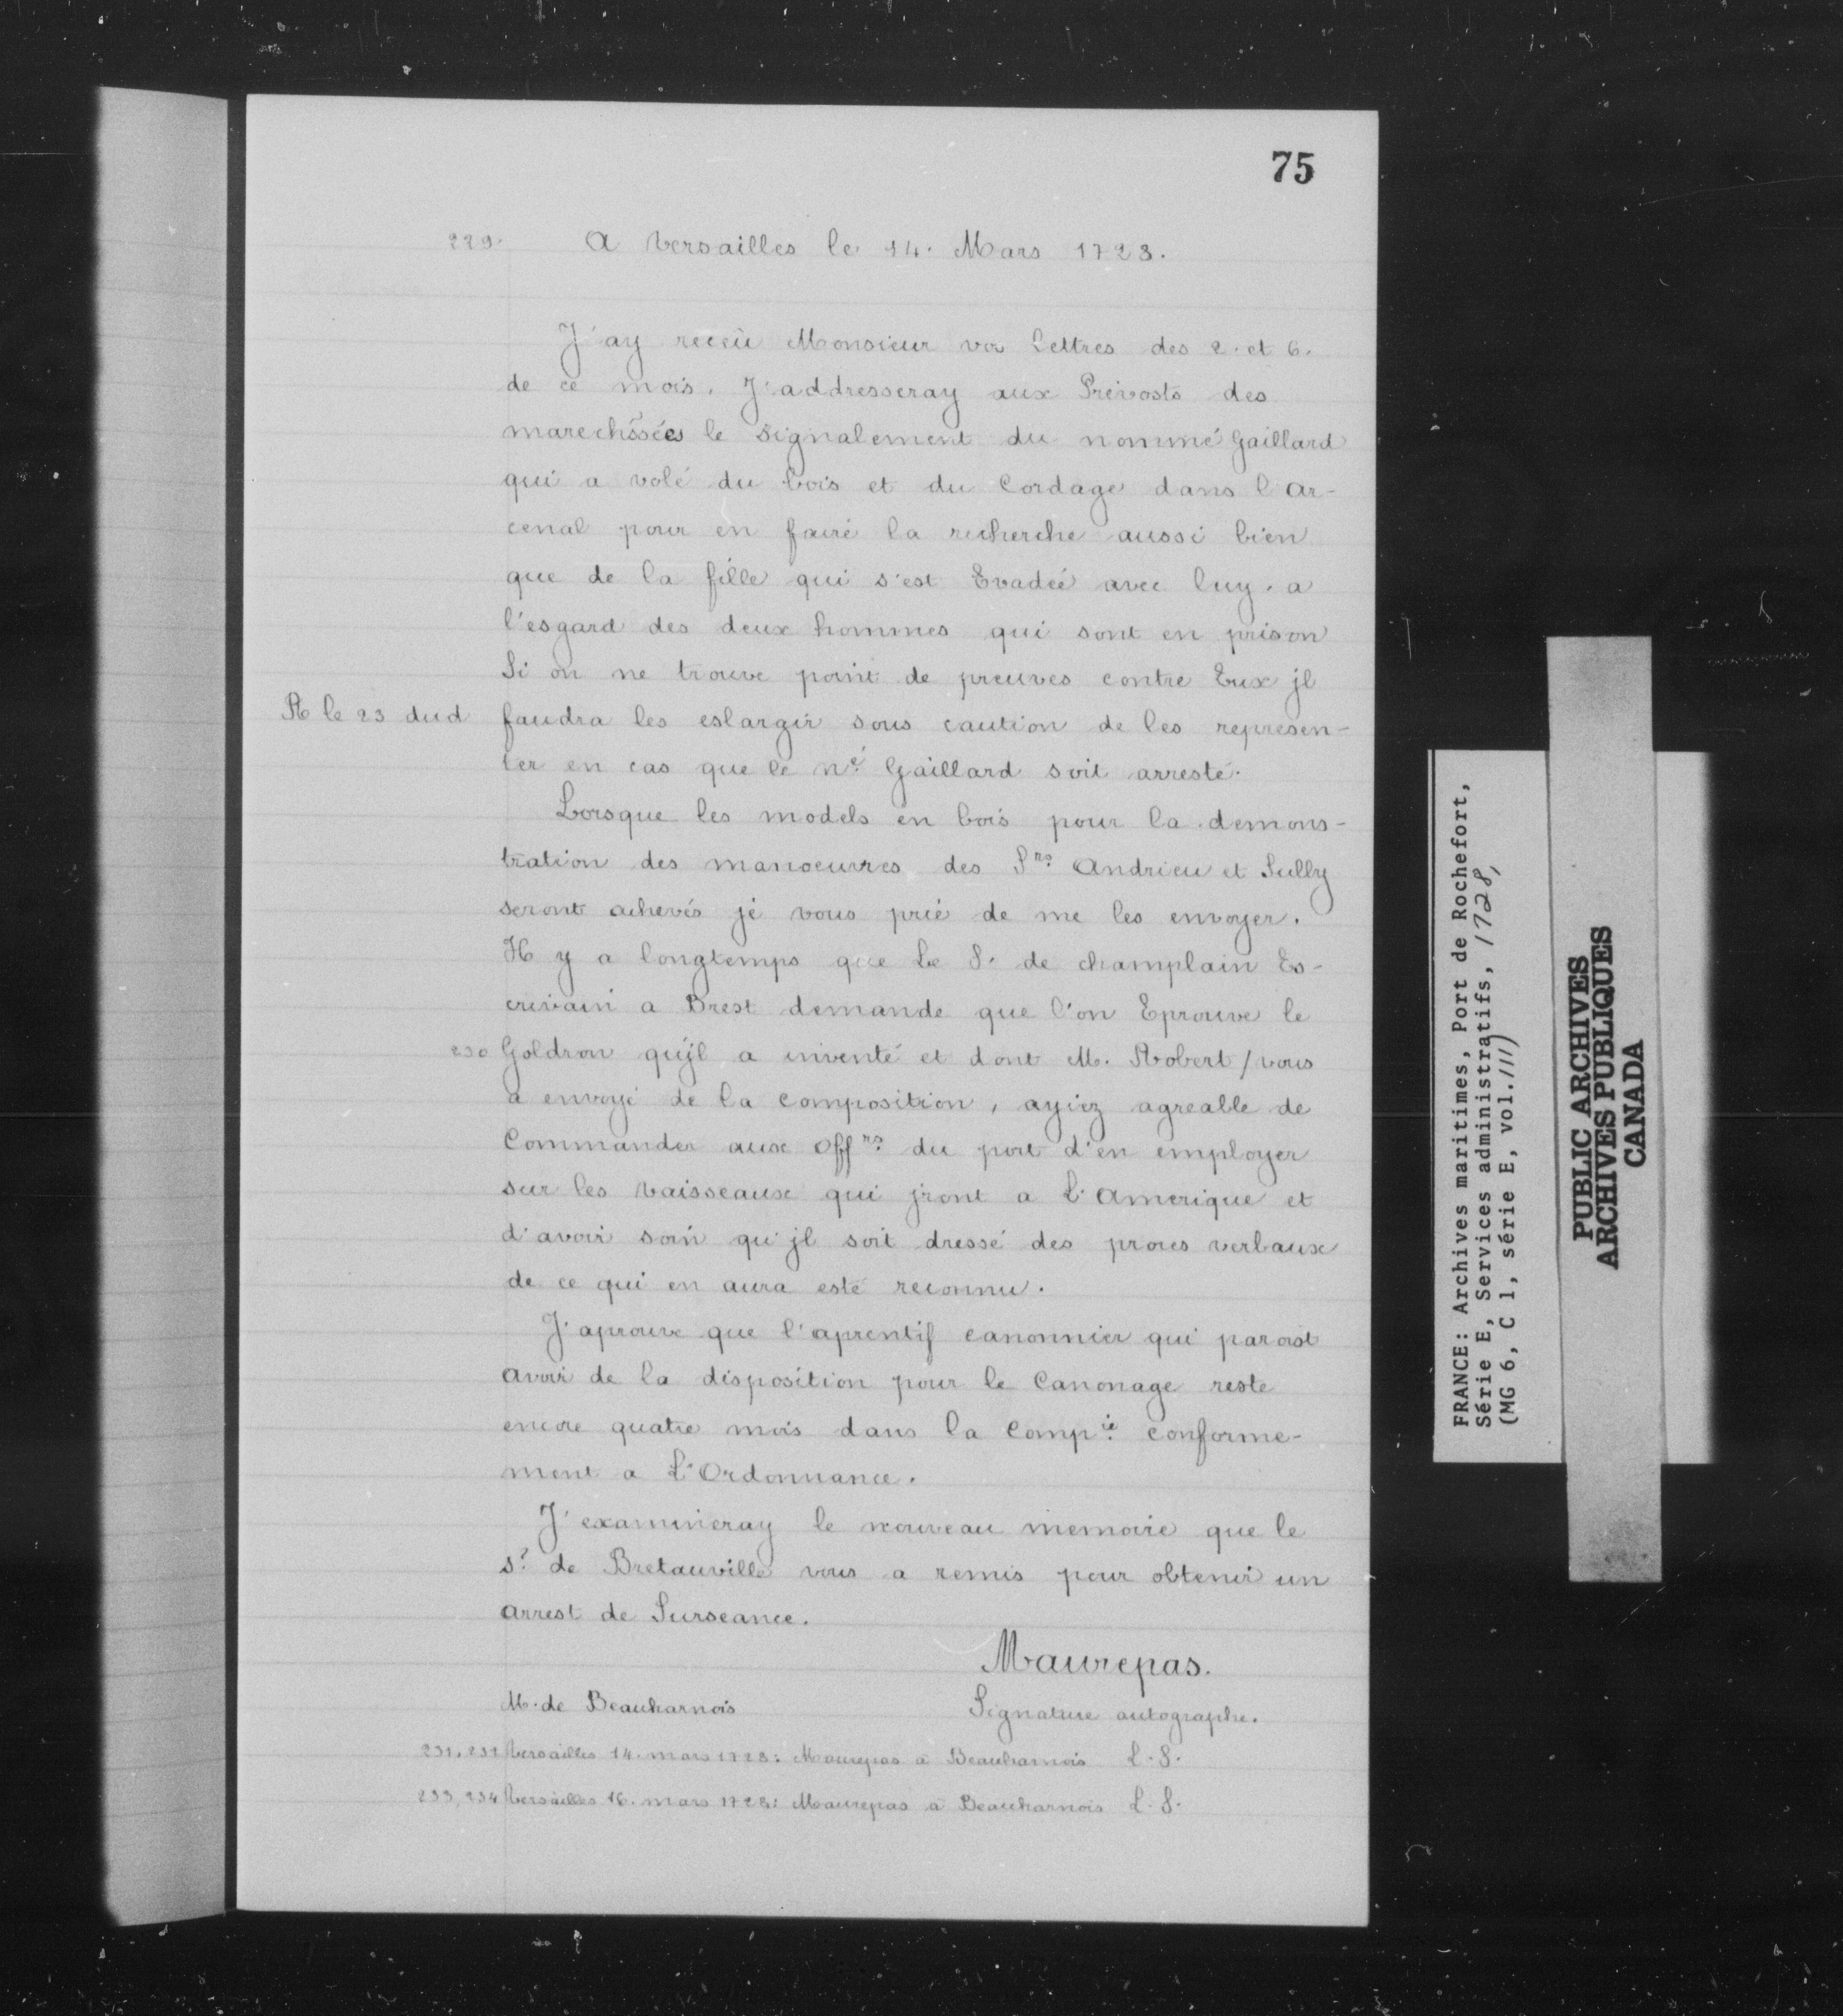 75
229. A Versailles le 14. Mars 1728.
J'ay receü Monsieur vos Lettres des 2. et 6.
de ce mois. J'addresseray aux Prévosts des
marechssées le signalement du nommé Gaillard
qui a volé du bois et du Cordage dans l'ar-
cenal pour en faire la recherche aussi bien
que de la fille qui s'est Evadée avec luy. a
l'esgard des deux hommes qui sont en prison
Si on ne trouve point de preuves contre Eux jl
R le 23 dud faudra les eslargir sous caution de les represen-
ter en cas que le né Gaillard soit arresté.
Lorsque les models en bois pour la demons-
tration des manoeuvres des Srs Andrieu et Sully
seront achevés je vous prie de me les envoyer.
Il y a longtemps que Le S. de champlain Es-
crivain a Brest demande que l'on Eprouve le
230 Goldron qu'jl a inventé et dont M. Robert / vous
a envoyé de la composition, ayiez agreable de
Commander aux Offrs du port d'en employer
sur les Vaisseaux qui jront a L'Amerique et
d'avoir soin qu'jl soit dressé des proces verbaux
de ce qui en aura esté reconnu.
J'aprouve que l'aprentif canonnier qui paroist
avoir de la disposition pour le Canonage reste
encore quatre mois dans la Compie conforme-
ment a L'Ordonnance.
J'examineray le nouveau memoire que le
Sr de Bretauville vous a remis pour obtenir un
arrest de Surseance.
Maurepas.
M. de Beauharnois Signature autographe.
231, 232 Versailles 14. mars 1728: Maurepas à Beauharnois L. S.
233, 234 Versailles 16. mars 1728: Maurepas à Beauharnois L. S.
FRANCE: Archives maritimes, Port de Rochefort,
Série E, Services administratifs, 1728,
(MG 6, C 1, série E, vol.111)
PUBLIC ARCHIVES
ARCHIVES PUBLIQUES
CANADA